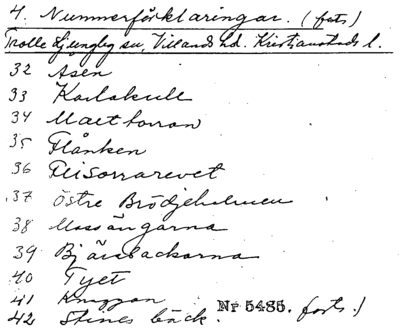 4. Nummerförklaringar. (forts.)
Trolle Ljungby sn, Villands hd. Kristianstads l.
32 Åsen
33 Karlakull
34
35 Flånken
36
37 Östre Brödjeholmen
38 Mossängarna
39 Bjärbackarna
40 Tyet
41 Knuppan
42 Stenes bäck. Nr 5485. forts.)